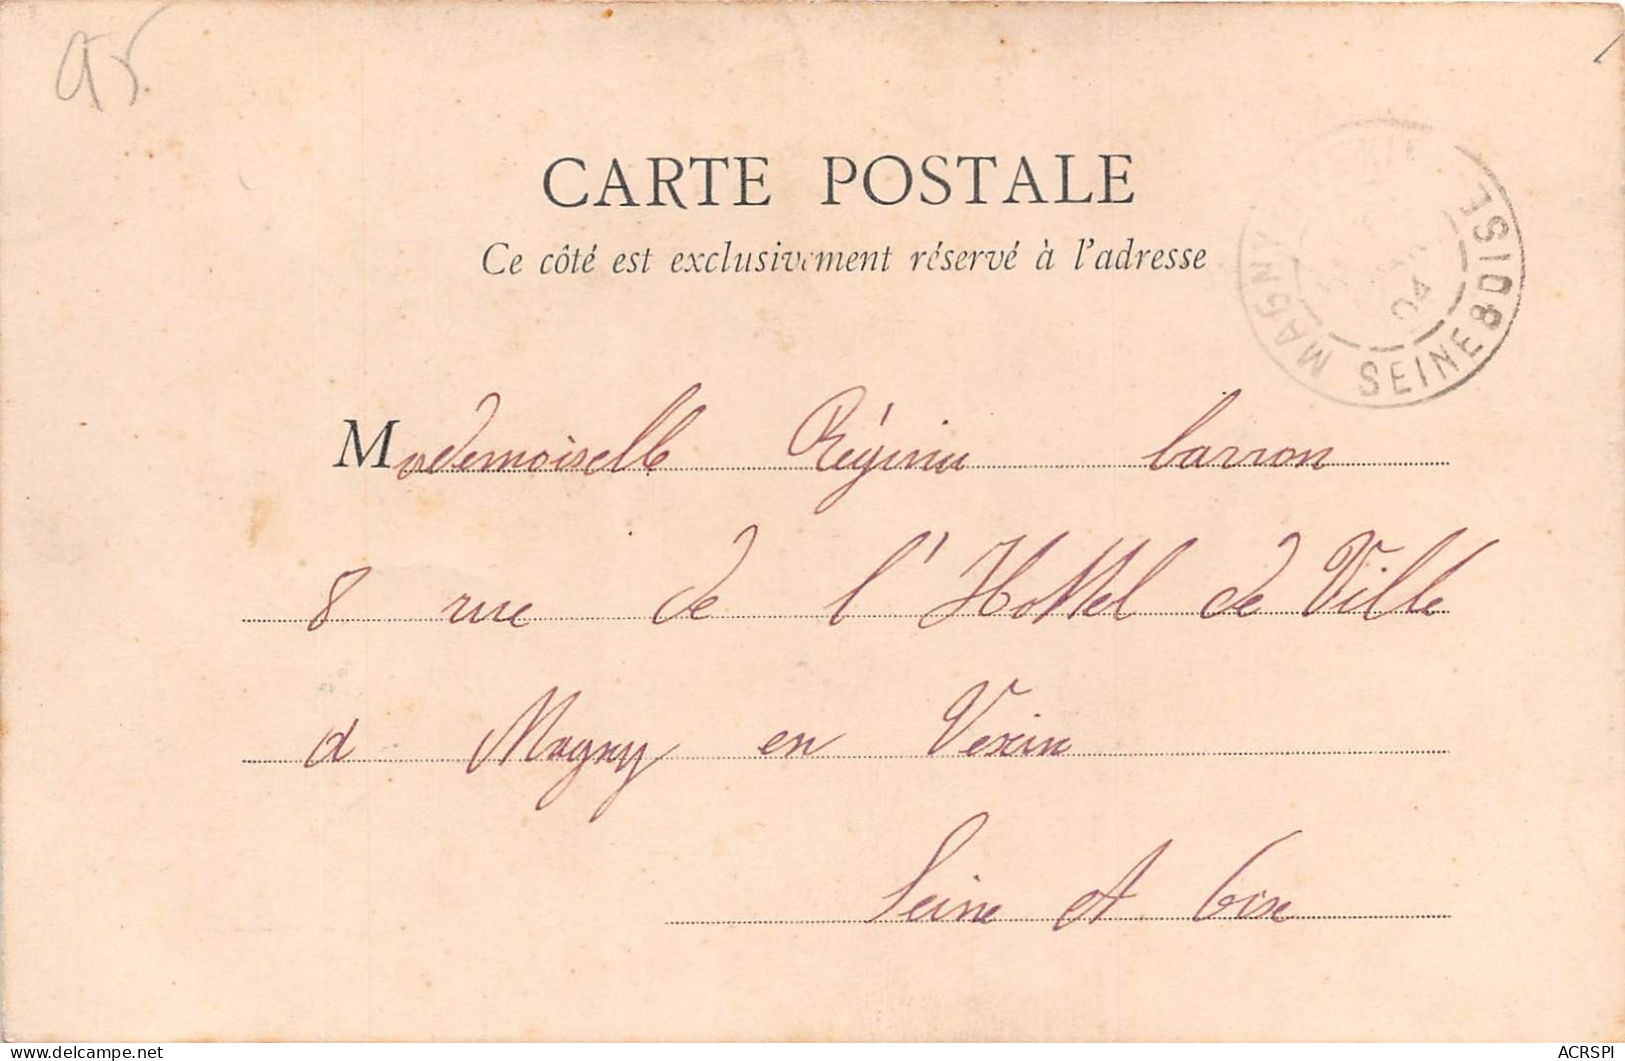 95
CARTE POSTALE
Ce côté est exclusivement réservé à l'adresse
MAGNY
SEINE & OISE
04
Mademoiselle Régina Carron
8 rue de l'Hottel de Ville
a Magny en Vexin
Seine et Oise
delcampe.net
ACRSPI